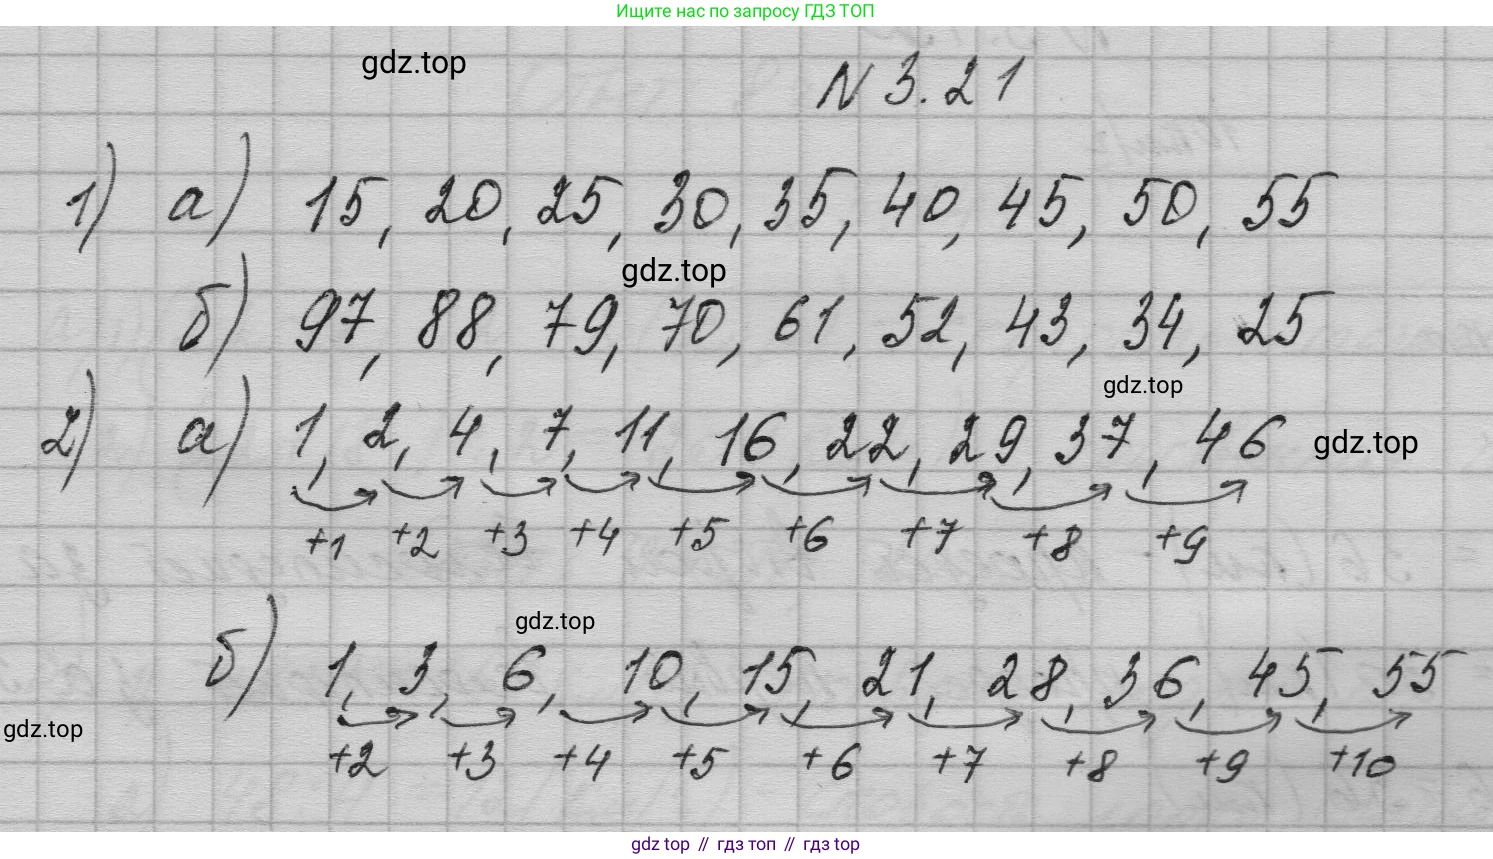 Ищите нас по запросу ГДЗ ТОП
gdz.top
N 3.21
1) а) 15, 20, 25, 30, 35, 40, 45, 50, 55
gdz.top
б) 97, 88, 79, 70, 61, 52, 43, 34, 25
gdz.top
2) а) 1, 2, 4, 7, 11, 16, 22, 29, 37, 46
gdz.top
+1 +2 +3 +4 +5 +6 +7 +8 +9
gdz.top
б) 1, 3, 6, 10, 15, 21, 28, 36, 45, 55
gdz.top
+2 +3 +4 +5 +6 +7 +8 +9 +10
gdz top // гдз топ // гдз top